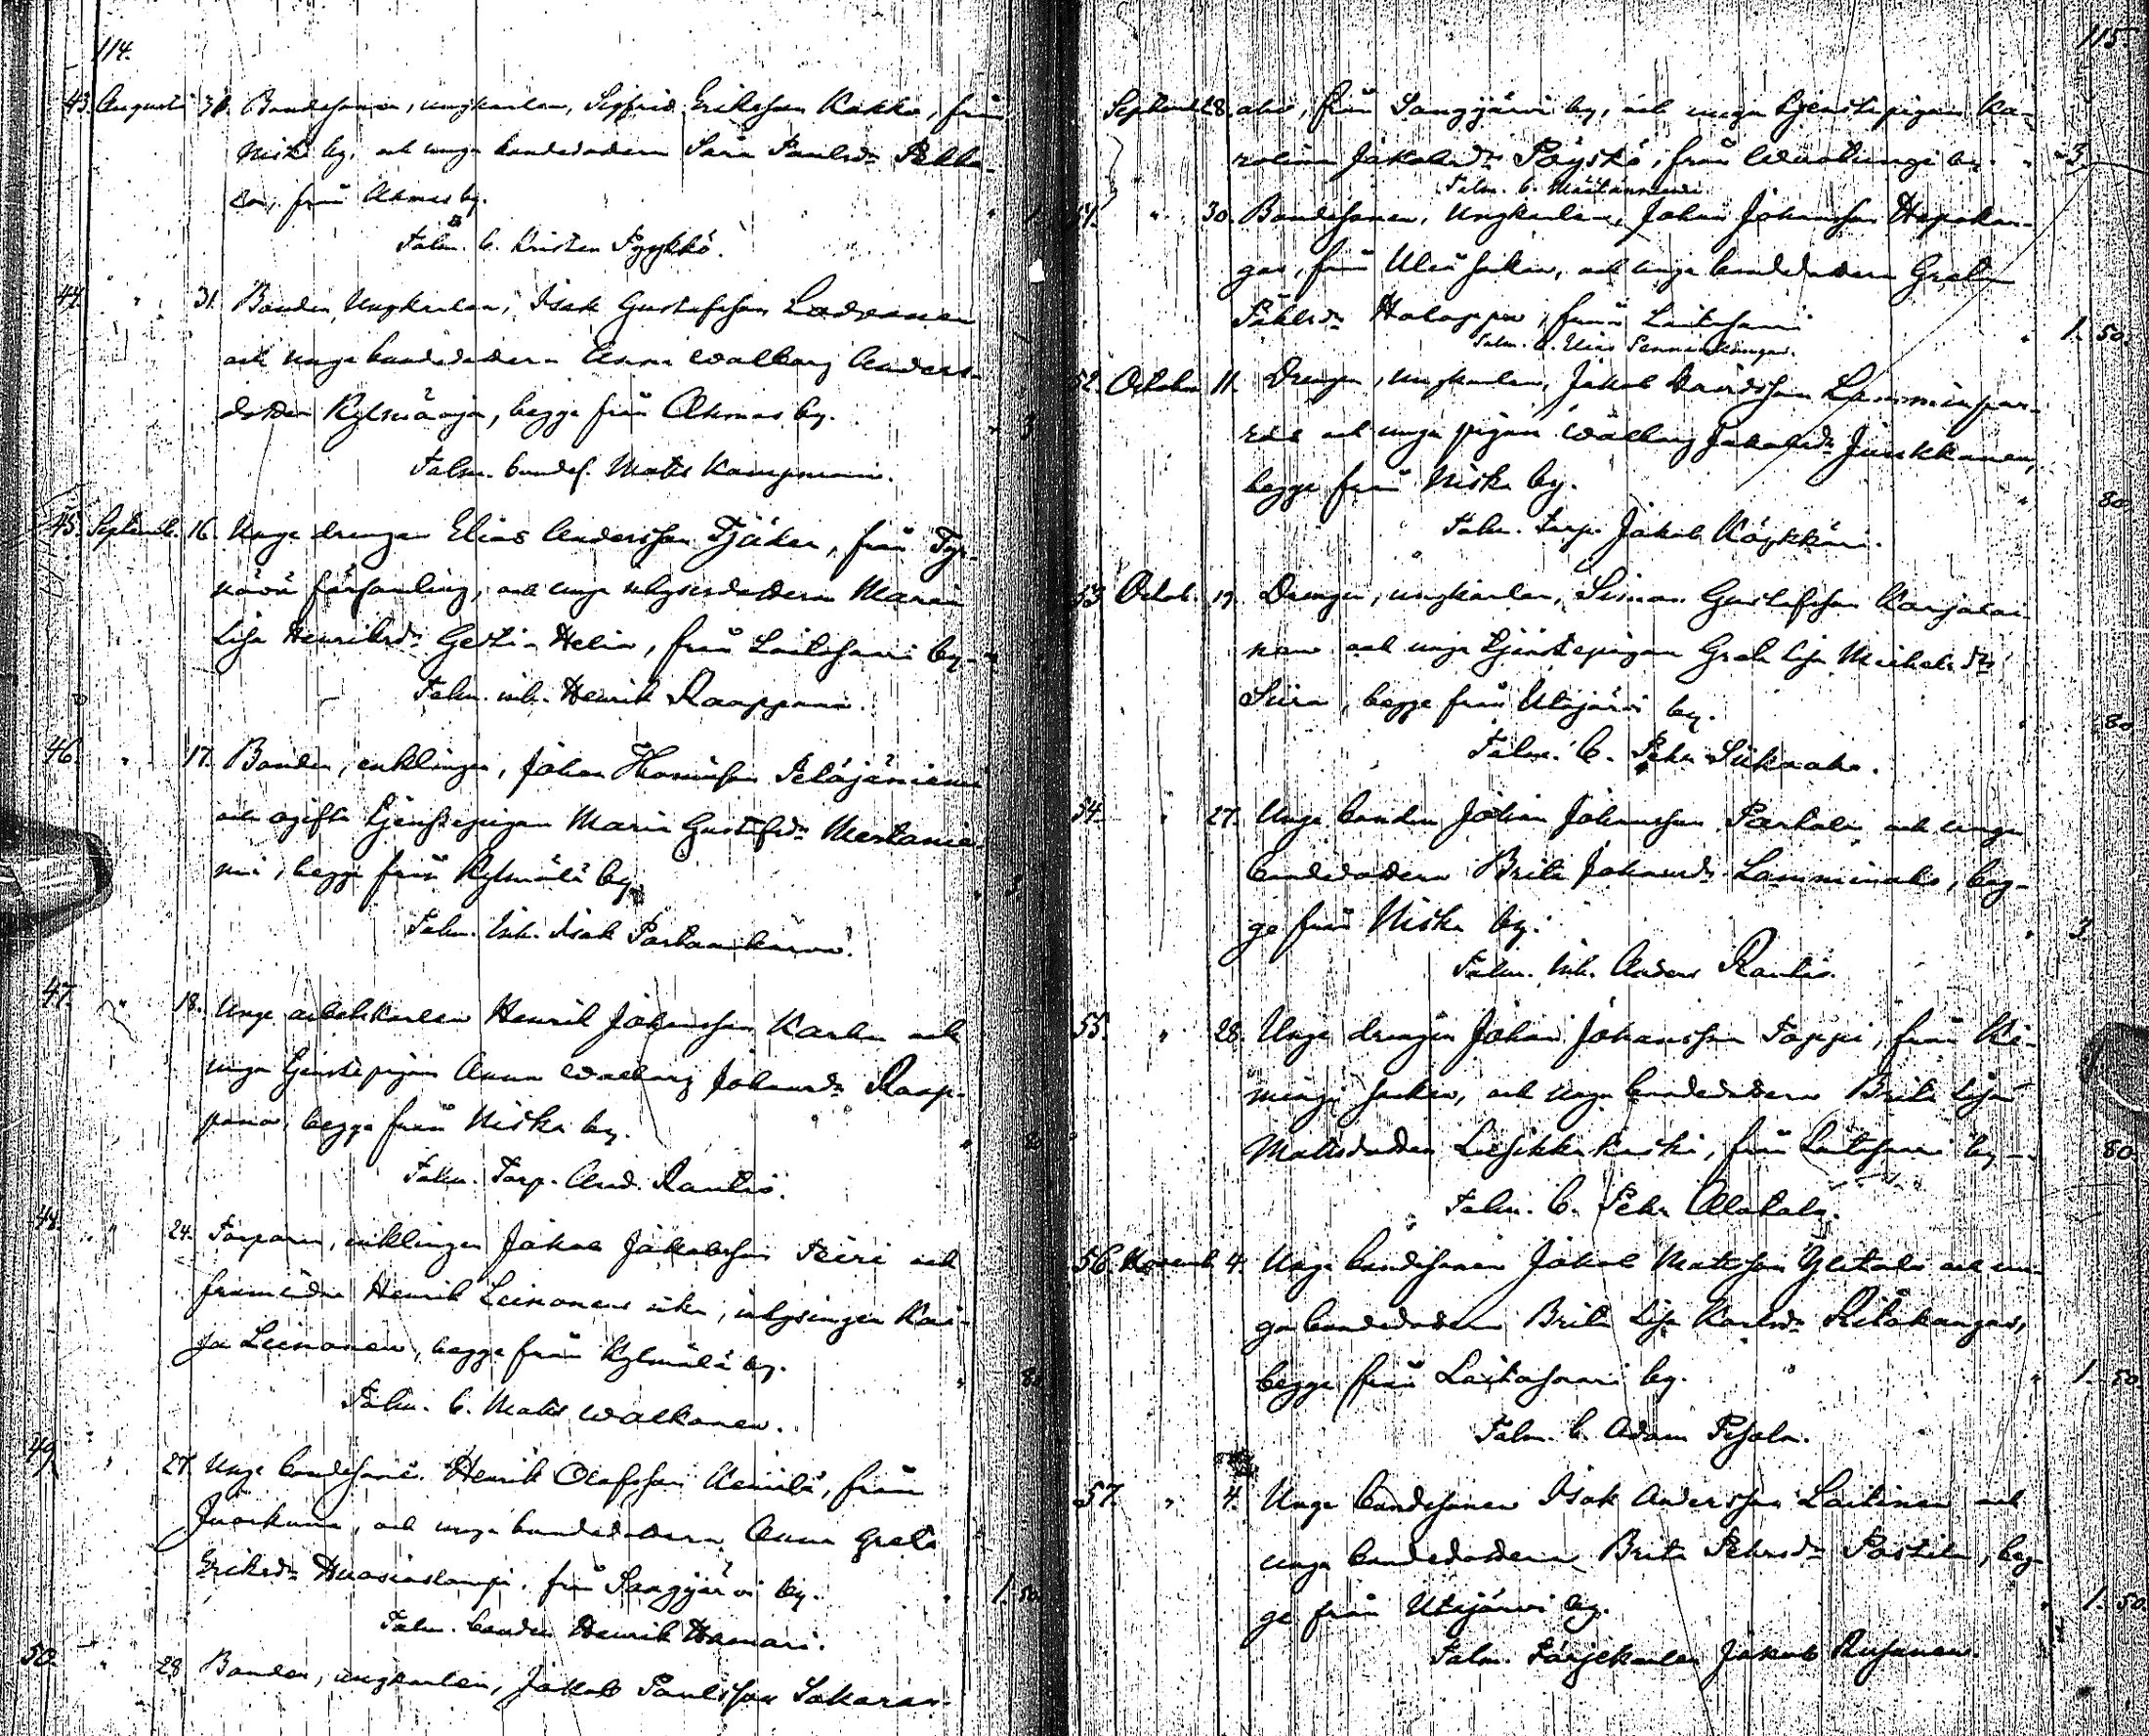 114.
43. Augusti 30. Bondesonen, ungkarlen, Sigfrid Eriksson Kakko, från
Niska by, och unga bondedottern Sara Paulsdr Pekka-
la, från Ahmas by. " 1.
Talm. b. Kristen Pyykkö.
44. " 31. Bonden, Ungkarlen, Isak Gustafsson
och unga bondedottern Anna Walborg Anders-
dotter Kylmäoja, begge från Ahmas by. " 3
Talm. bondes. Matts
45. Septemb. 16. Unge drengen Elias Andersson Tjäder, från Tyr-
növä församling, och unga inhysesdottern Maria
Lisa Henriksdr Gesti-Helin, från Laitasaari by.
Talm. inh. Henrik Raappana.
46. " 17. Bonden, enklingen, Johan Thomasson Petäjäniemi
och ogifta tjenstepigan Maria Gustafsdr Mertanie-
mi, begge från Kylmälä by.
Talm. Inh. Isak
47. " 18. Unge arbetskarlen Henrik Johansson Karhu och
unga tjenstepigan Anna Walborg Johansdr Raap-
pana, begge från Niska by.
Talm. Torp. And. Rautio.
48. " 24. Torparen, enklingen Jakob Jakobsson Piiri och
framlidne Henrik Leinonens enka, inhysingen Kai-
sa Leinonen, begge från Kylmälä by. " 80
Talm. b. Matts Walkonen.
49. " 27. Unge bondesonen Henrik Olofsson från
och unga bondedottern Anna Greta
Eriksdr Huosiaslampi, från Sanginjärvi by. " 1. 50.
Talm. bonden Henrik Hamari.
50. " 28 Bonden, ungkarlen, Jakob Paulsson Sakaran-
115.
Septemb. 28. aho, från Sanginjärvi by, och unga tjenstepigan Ka-
rolina Jakobsdr Pöyskö, från by. " 3
Talm. b.
51. " 30. Bondesonen, Ungkarlen, Johan Johansson Hepokan-
gas, från Uleå socken, och unga bondedottern Greta
Påhlsdr Holappa, från Laitasaari " 1. 50.
Talm. b. Elias
52. October 11. Drengen, ungkarlen, Jakob Davidsson Lamminpar-
ras och unga pigan Walborg Jakobsdr Junkkanen,
begge från Niska by. " 80
Talm. Torp. Jakob Köykkäri.
53 Octob. 19. Drengen, ungkarlen, Simon Gustafsson Karjalai-
nen och unga tjenstepigan Greta Lisa Michelsdr
Siira, begge från Utajärvi by. " 80
Talm. b. Pehr Siikaaho.
54. " 27. Unge bonden Johan Johansson Parkala och unga
bondedottern Brita Johansdr Lamminaho, beg-
ge från Niska by. " 3.
Talm. Inh. Anders Rautio.
55. " 28. Unge drengen Johan Johansson Toppi, från Ki-
minge socken, och unga bondedottern Brita Lisa
Mattsdotter Lesikkakaski, från Laitasaari by " 80.
Talm. b. Pehr Alatalo.
56. Novemb. 4. Unge bondesonen Jakob Mattsson Ylitalo och un-
ga bondedottern Brita Lisa Karlsdr Ritokangas,
begge från Laitasaari by. " 1. 50
Talm. b. Adam Pesola.
57. " 4. Unge bondesonen Isak Andersson Laitinen och
unga bondedottern Brita Pehrsdr Postila, beg-
ge från Utajärvi by. " 1. 50.
Talm. Färjekarlen Jakob Rusanen.